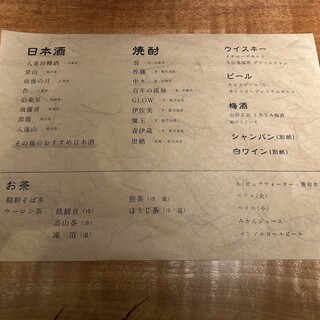 日本酒
八重垣樽酒
常山
雨後の月
作
伯楽星
飛露喜
黒龍
八海山
その他のおすすめ日本酒
焼酎
佐藤
中々
百年の孤独
GLOW
伊佐美
魔王
森伊蔵
黒糖
ウイスキー
ビール
梅酒
シャンパン(別紙)
白ワイン(別紙)
お茶
韃靼そば茶
ウーロン茶 鉄観音(冷)
高山茶(冷)
凍頂(温)
煎茶(冷・温)
ほうじ茶(冷・温)
ペリエ(大)
ペリエ(小)
みかんジュース
ノンアルコールビール